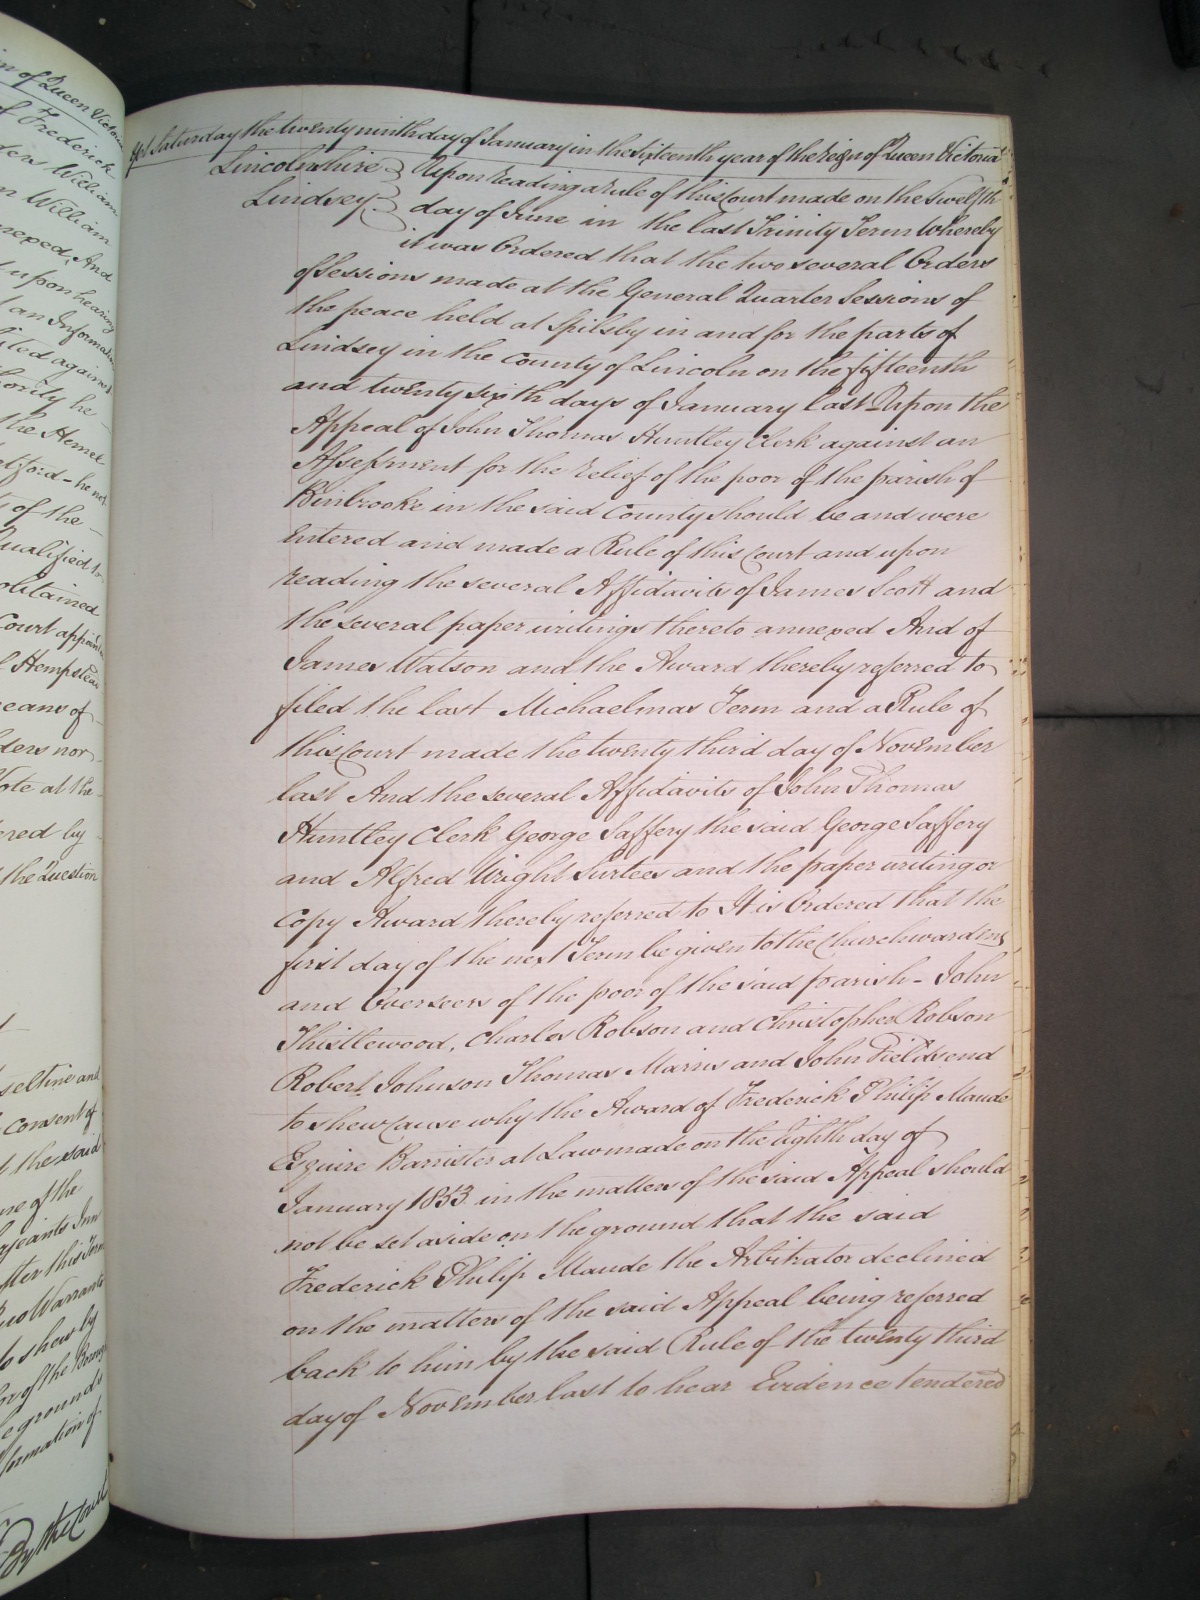 n of Queen Victoria
of Frederick
ders William
n William
nexed, And
upon hearing
an Informati
ited against
hority he
the Hemel
etford - he not
of the
Qualified to
obtained
Court appoint
Hempstead
eans of
ders nor
Vote at the
ered by
the Question
seltine and
consent of
the said
ne of the
erjeants Inn
fter this Term
uo Warranto
to shew by
or of the Borough
e grounds
formation of
By the Court
Yet Saturday the twenty ninth day of January in the Sixteenth year of the reign of Queen Victoria
Lincolnshire } Upon reading a rule of this Court made on the twelfth
Lindsey } day of June in the last Trinity Term whereby
it was Ordered that the two several Orders
of Sessions made at the General Quarter Sessions of
the peace held at Spilsby in and for the parts of
Lindsey in the County of Lincoln on the fifteenth
and twenty sixth days of January last Upon the
Appeal of John Thomas Huntley Clerk against an
Assessment for the relief of the poor of the parish of
Binbrooke in the said County should be and were
Entered and made a Rule of this Court and upon
reading the several Affidavits of James Scott and
the several paper writings thereto annexed And of
James Watson and the Award thereby referred to
filed the last Michaelmas Term and a Rule of
this Court made the twenty third day of November
last And the several Affidavits of John Thomas
Huntley Clerk George Saffery the said George Saffery
and Alfred Wright Surtees and the paper writing or
Copy Award thereby referred to It is Ordered that the
first day of the next Term be given to the Churchwardens
and Overseers of the poor of the said parish - John
Thistlewood, Charles Robson and Christopher Robson
Robert Johnson Thomas Marris and John Fieldsend
to shew cause why the Award of Frederick Philip Maude
Esquire Barrister at Law made on the Eighth day of
January 1853 in the matters of the said Appeal should
not be set aside on the ground that the said
Frederick Philip Maude the Arbitrator declined
on the matters of the said Appeal being referred
back to him by the said Rule of the twenty third
day of November last to hear Evidence tendered